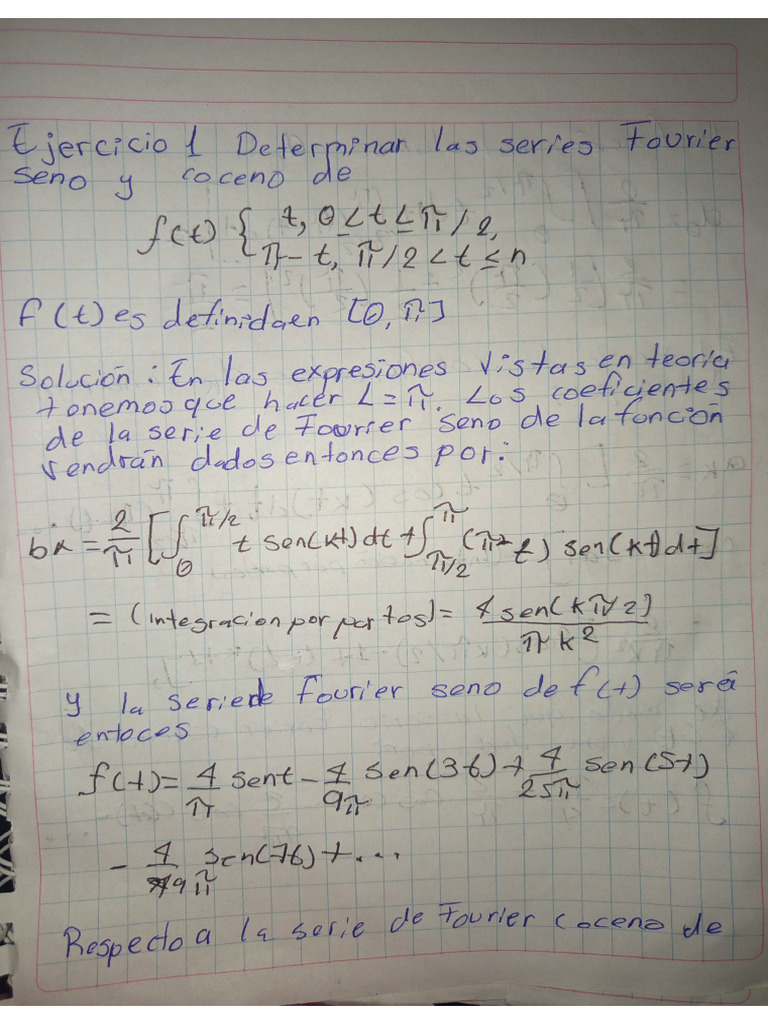 Ejercicio 1 Determinar las series Fourier
seno y coceno de
f(t) { t, 0 ≤ t ≤ π/2,
π - t, π/2 < t ≤ n
f(t) es definida en [0, π]
Solución: En las expresiones vistas en teoria
tonemos que hacer L = π. Los coeficientes
de la serie de Foorier seno de la fonción
vendrán dados entonces por:
bk = 2/π [∫_0^{π/2} t sen(kt) dt + ∫_{π/2}^{π} (π - t) sen(kt) dt]
= (integracion por partos) = 4 sen(kπ/2) / πk²
y la serie de Fourier seno de f(t) será
entoces
f(t) = 4/π sent - 4/9π sen(3t) + 4/25π sen(5t)
- 4/49π sen(7t) + ...
Respecto a la serie de Fourier coceno de